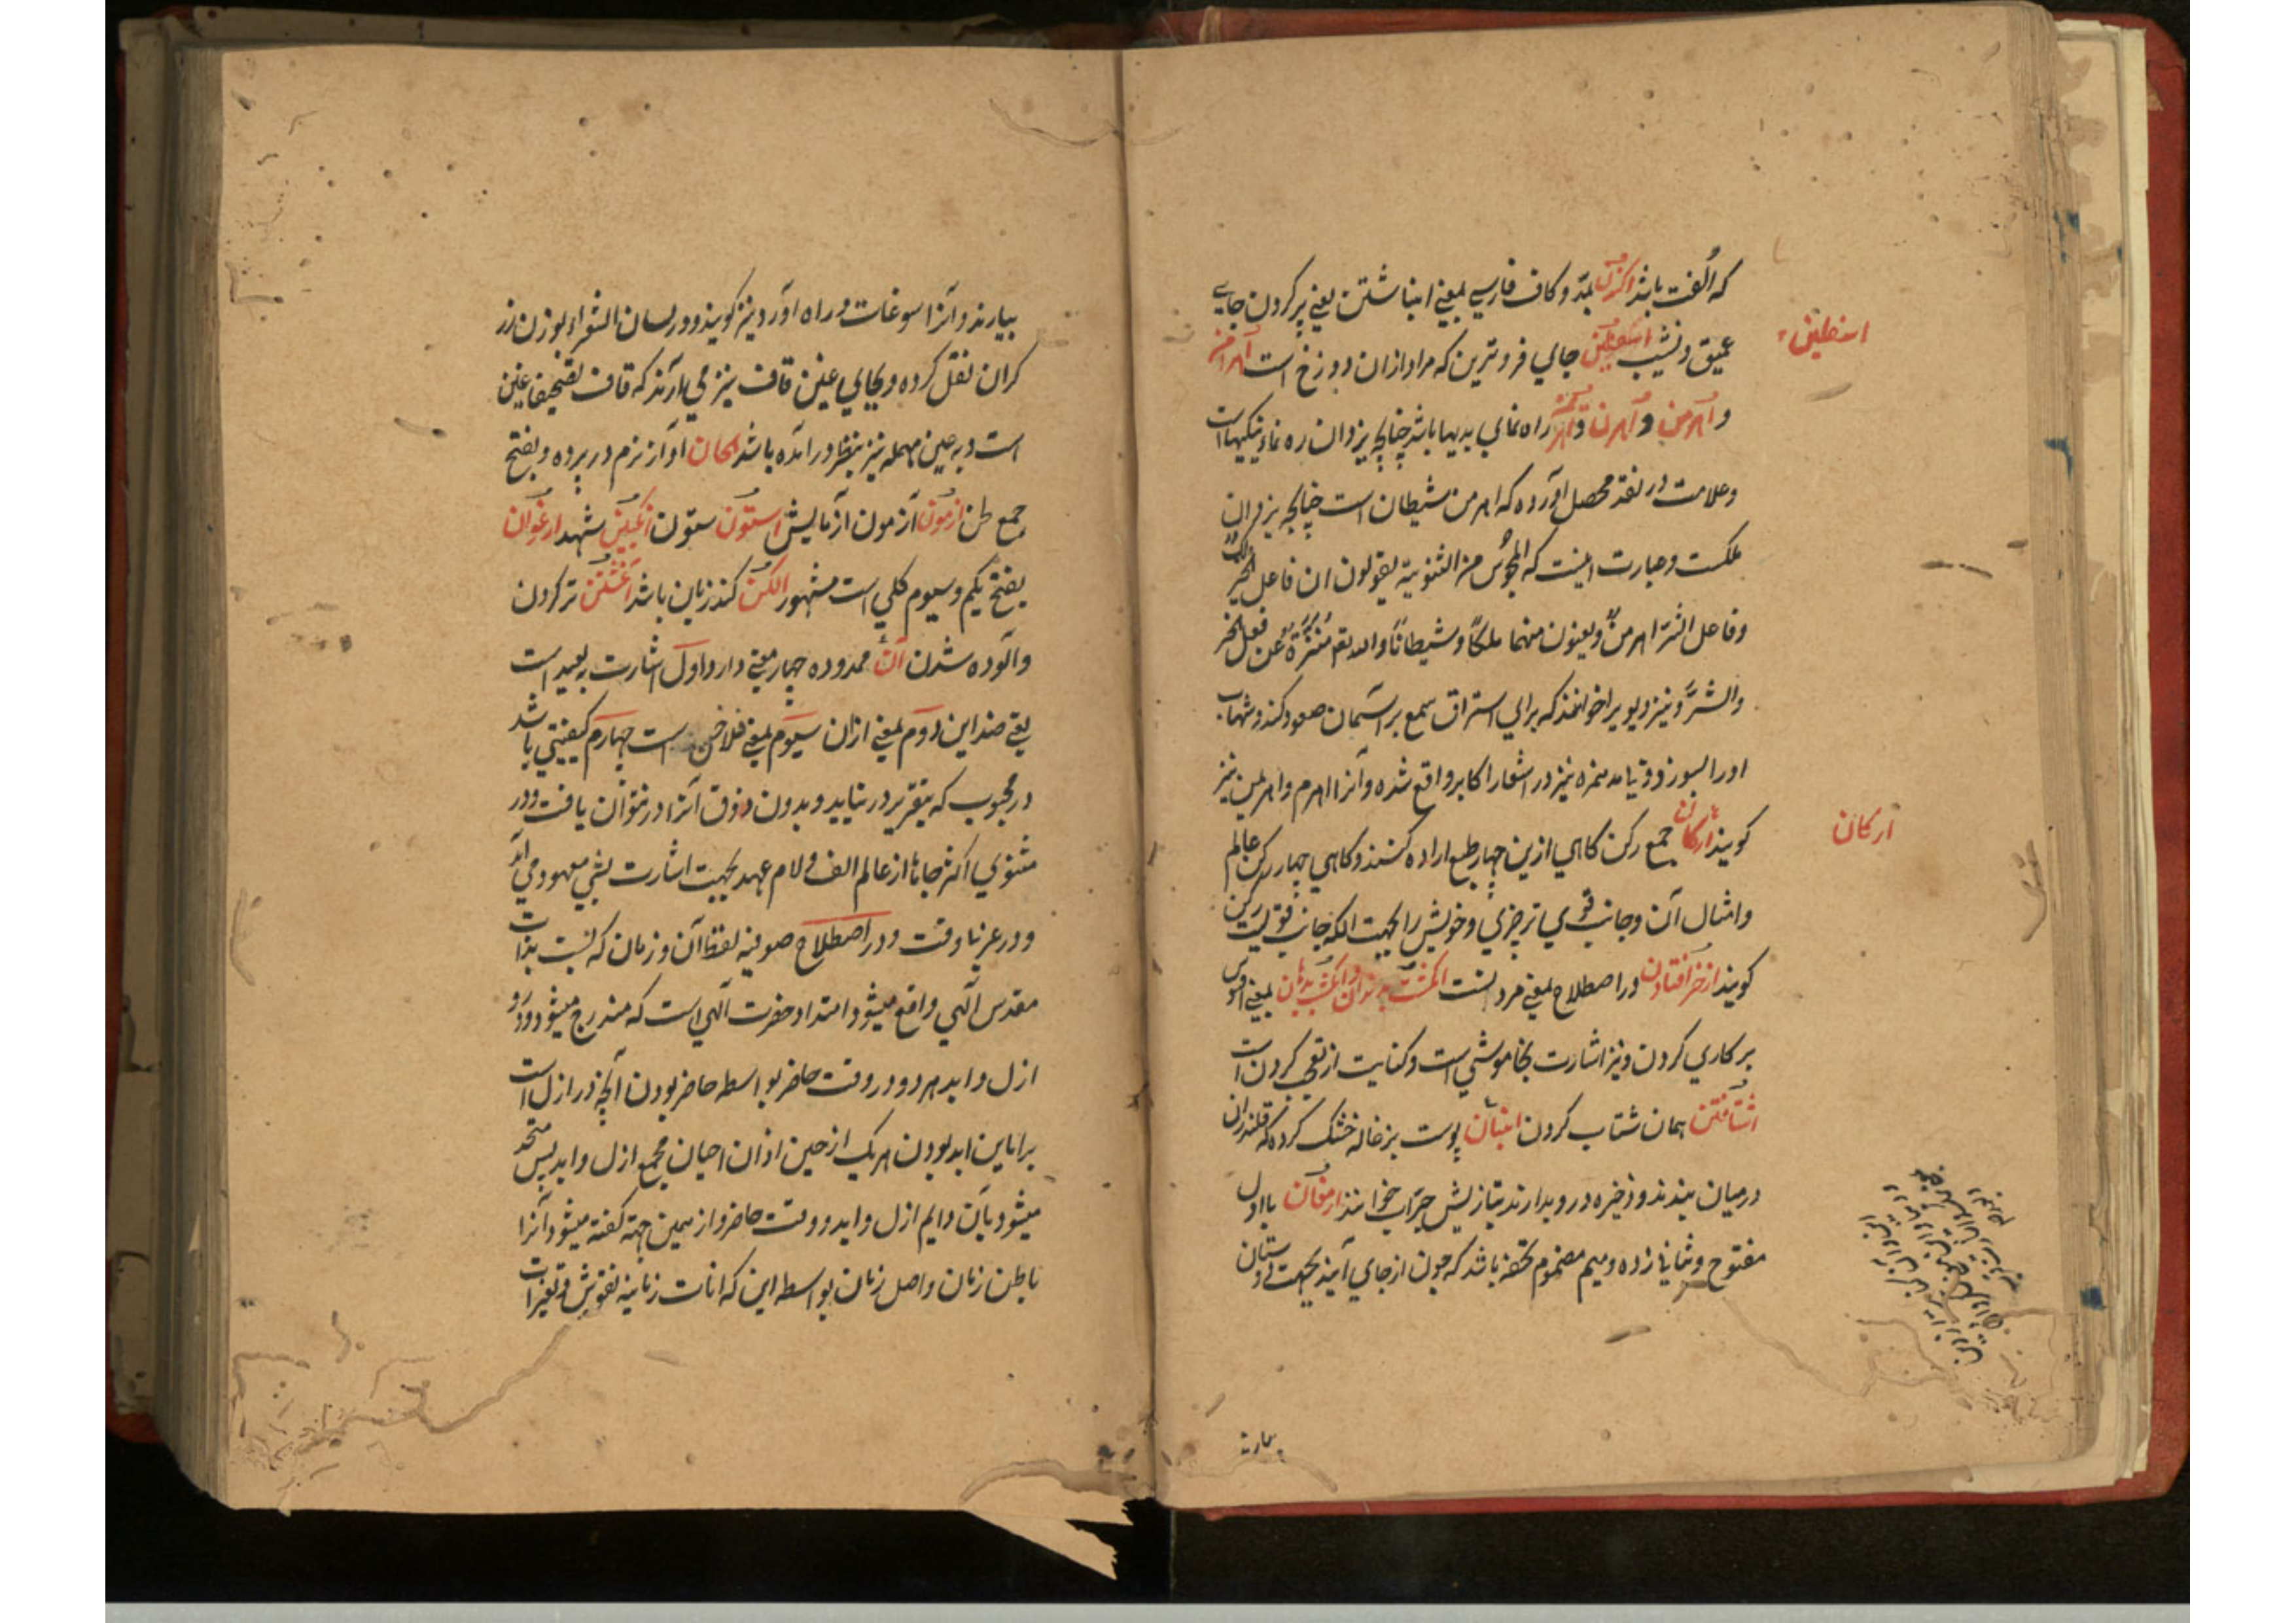 که الفت باشد اکندن بمد و کاف فارسی بمعنی انباشتن یعنی پر کردن جای
عمیق و نشیب اسفلین جای فروترین که مراد از ان دوزخ است اهرامن
و اهرمن و اهرن و راه نمای به بدیها باشد چنانچه یزدان ره نماء نیکیهاست
وعلامت در نقد محصل آورده که اهرمن شیطان است چنانچه یزدان
ملکست و عبارت اینست که المجوس من الثنویة یقولون ان فاعل الخیر
وفاعل الشر اهرمن ویعنون منهما ملکا و شیطانا والله تع منزه عن فعل الخیر
والشر و نیز دیو یرا خوانند که برای استراق سمع بر آسمان صعود کند و شهاب
اورا بسوزد و نیز در اشعار اکابر واقع شده و آنرا اهرم و نیز
کویند ارکان جمع رکن کاهی ازین چهار طبع اراده کنند و کاهی چهار رکن عالم
وامثال آن و جانب قوی تر چیزی و خویش را بجهت انکه جانب قویست رکن
کویند از خر افتادن در اصطلاح بمعنی مردنست انکشت بدندان بمعنی افسوس
بر کاری کردن و نیز اشارت بخاموشی است و کنایت از تعجب کردن است
اشتافتن همان شتاب کردن انبان پوست بزغاله خشک کرده که قلندران
درمیان بندند و ذخیره درو بدارند بتازیش جراب خوانند ارمغان با اول
مفتوح و بثانی زده و میم مضموم تحفه باشد که چون از جای آیند بجهت دوستان
اسفلین
ارکان
بیارند
بیارند و آنرا سوغات و راه آورد نیز کویند و در لسان الشعراء بوزن زر
کران نقل کرده و بجای غین قاف نیز می آرند که قاف تصحیف غین
است و بعین مهمله نیز بنظر در آمده باشد الحان آواز نرم در پرده و بفتح
جمع لحن ازمون آزمون آزمایش استون ستون انکبین شهد ارغوان
بفتح یکم و سیوم کلی است مشهور الکن کند زبان باشد آغشتن تر کردن
و آلوده شدن آن ممدوده چهار معنی دارد اول اشارت به بعید است
یعنی ضد این دوم بمعنی ازان سیوم بمعنی فلاخن است چهارم کیفیتی باشد
در محبوب که بتقریر در نیاید و بدون ذوق آنرا در نتوان یافت و در
مثنوی اکثر جاها از عالم الف و لام عهد بجهت اشارت بشی معهود می آید
و در عربی وقت و در اصطلاح صوفیه لفظ آن و زمان که نسبت بذات
مقدس الهی واقع میشود امتداد حضرت الهی است که مندرج میشود درو
ازل و ابد هر دو در وقت حاضر بواسطه حاضر بودن آنچه در ازل است
بر این ابد بودن هر یک از حین ازان احیان مجمع ازل و ابد پس متحد
میشود بآن دایم ازل و ابد و وقت حاضر و از همین جهة کفته میشود آنرا
باطن زمان و اصل زمان بواسطه این که انات زمانیه نقوش و تغیرات